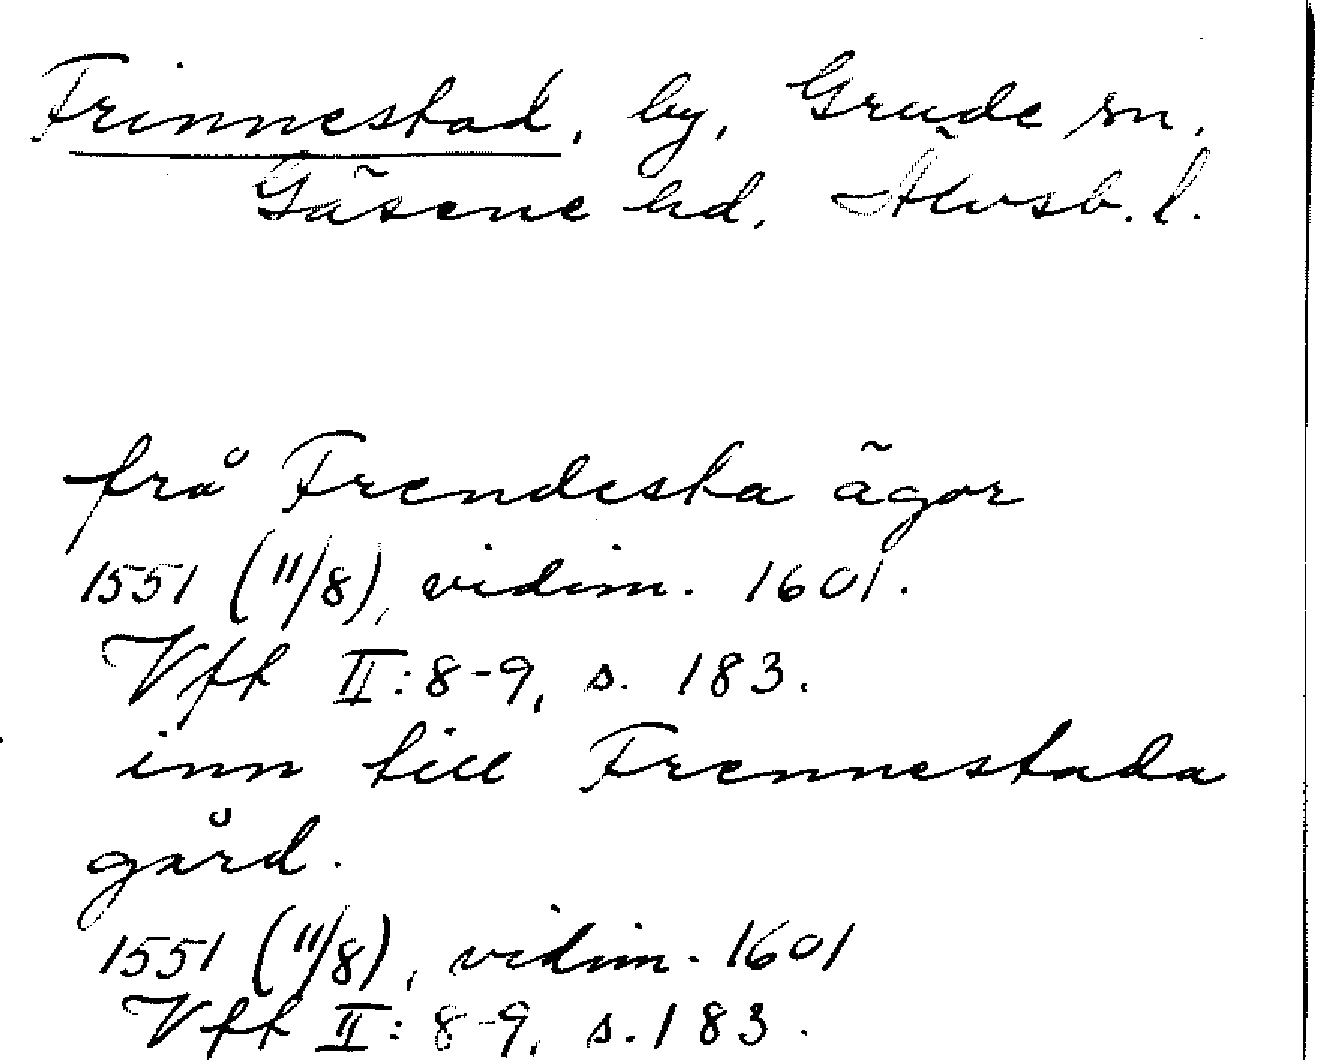 Frinnestad, by, Grude sn,
Gäsene hd, Älvsb. l.
från Frendesta ägor
1551 (11/8), vidim. 1601.
Vft II: 8-9, s. 183.
inn till Frennestada
gård.
1551 (11/8), vidim. 1601
Vft II: 8-9, s. 183.